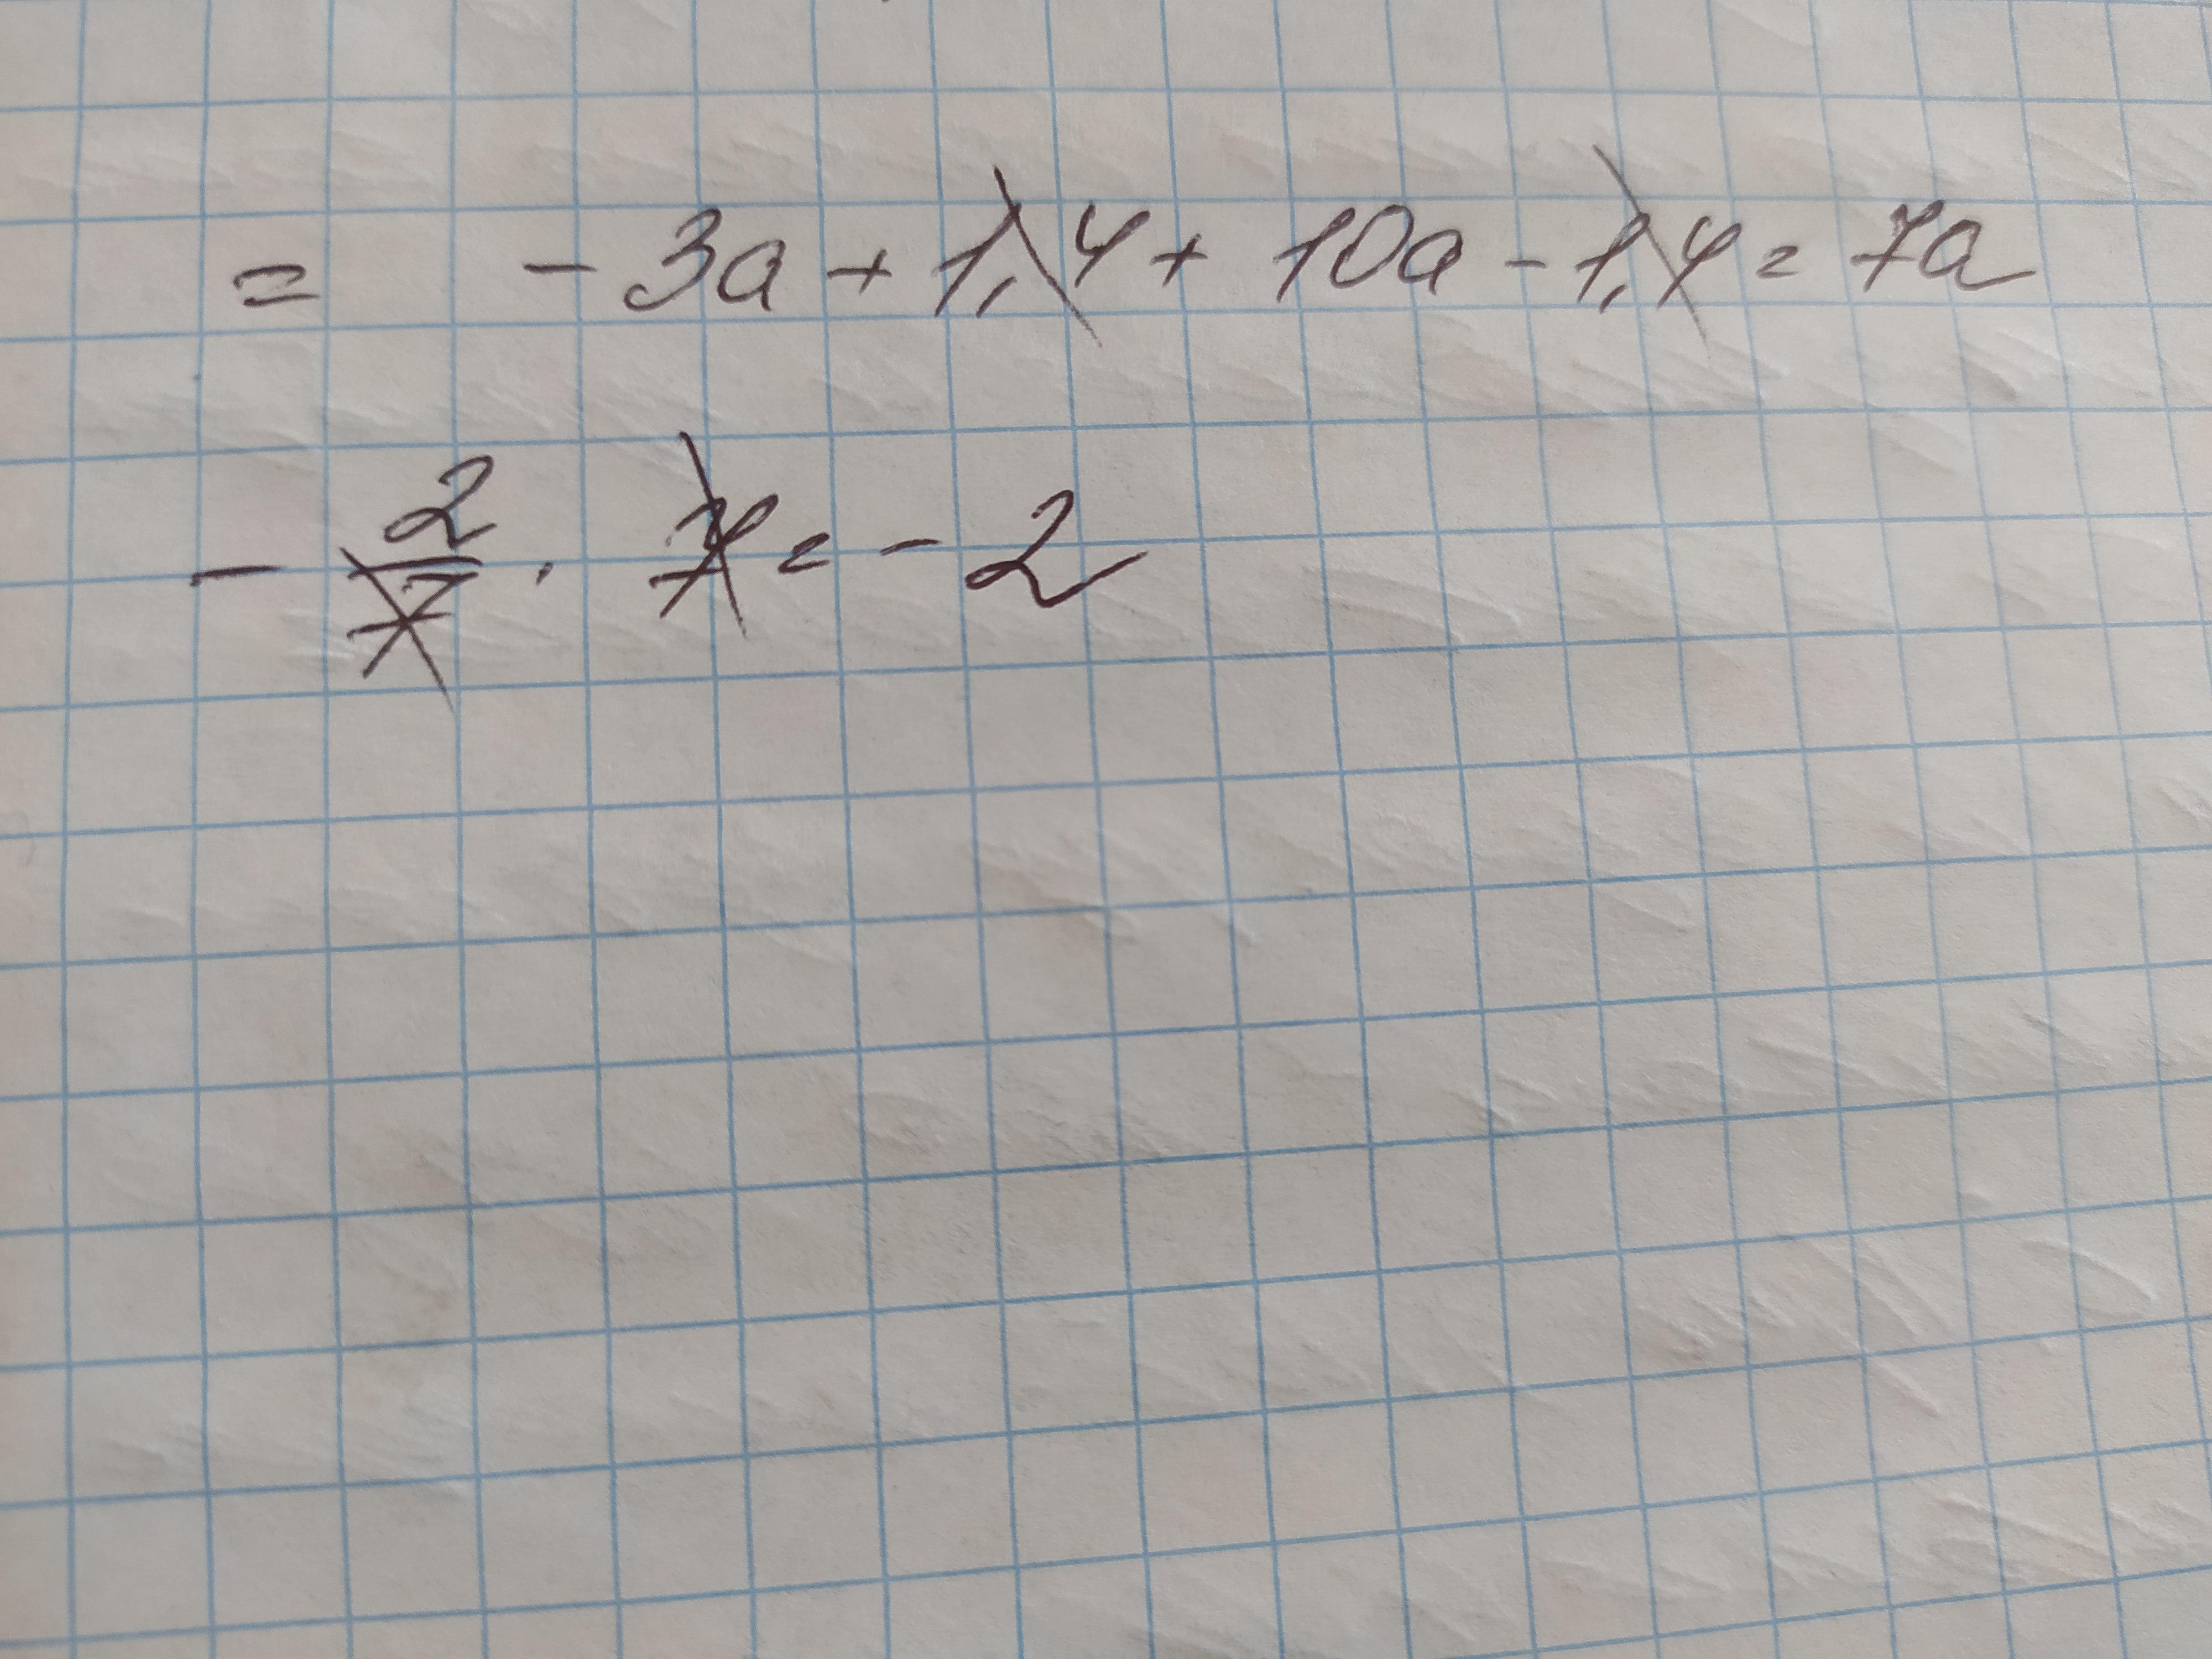 = - 3a + 1,4 + 10a - 1,4 = 7a
- 2/7 · 7 = - 2